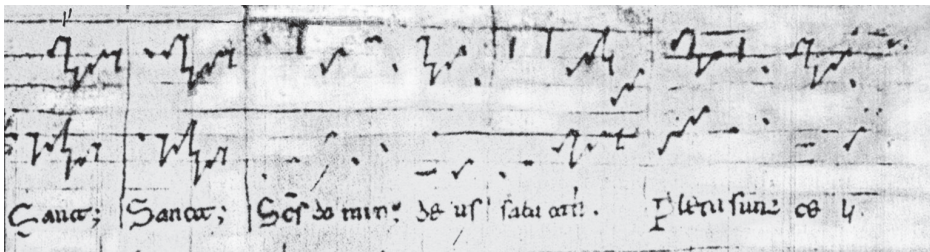 Sanct; Sanct; Scs do min; de us sabaoth. Pleni sunt ce li